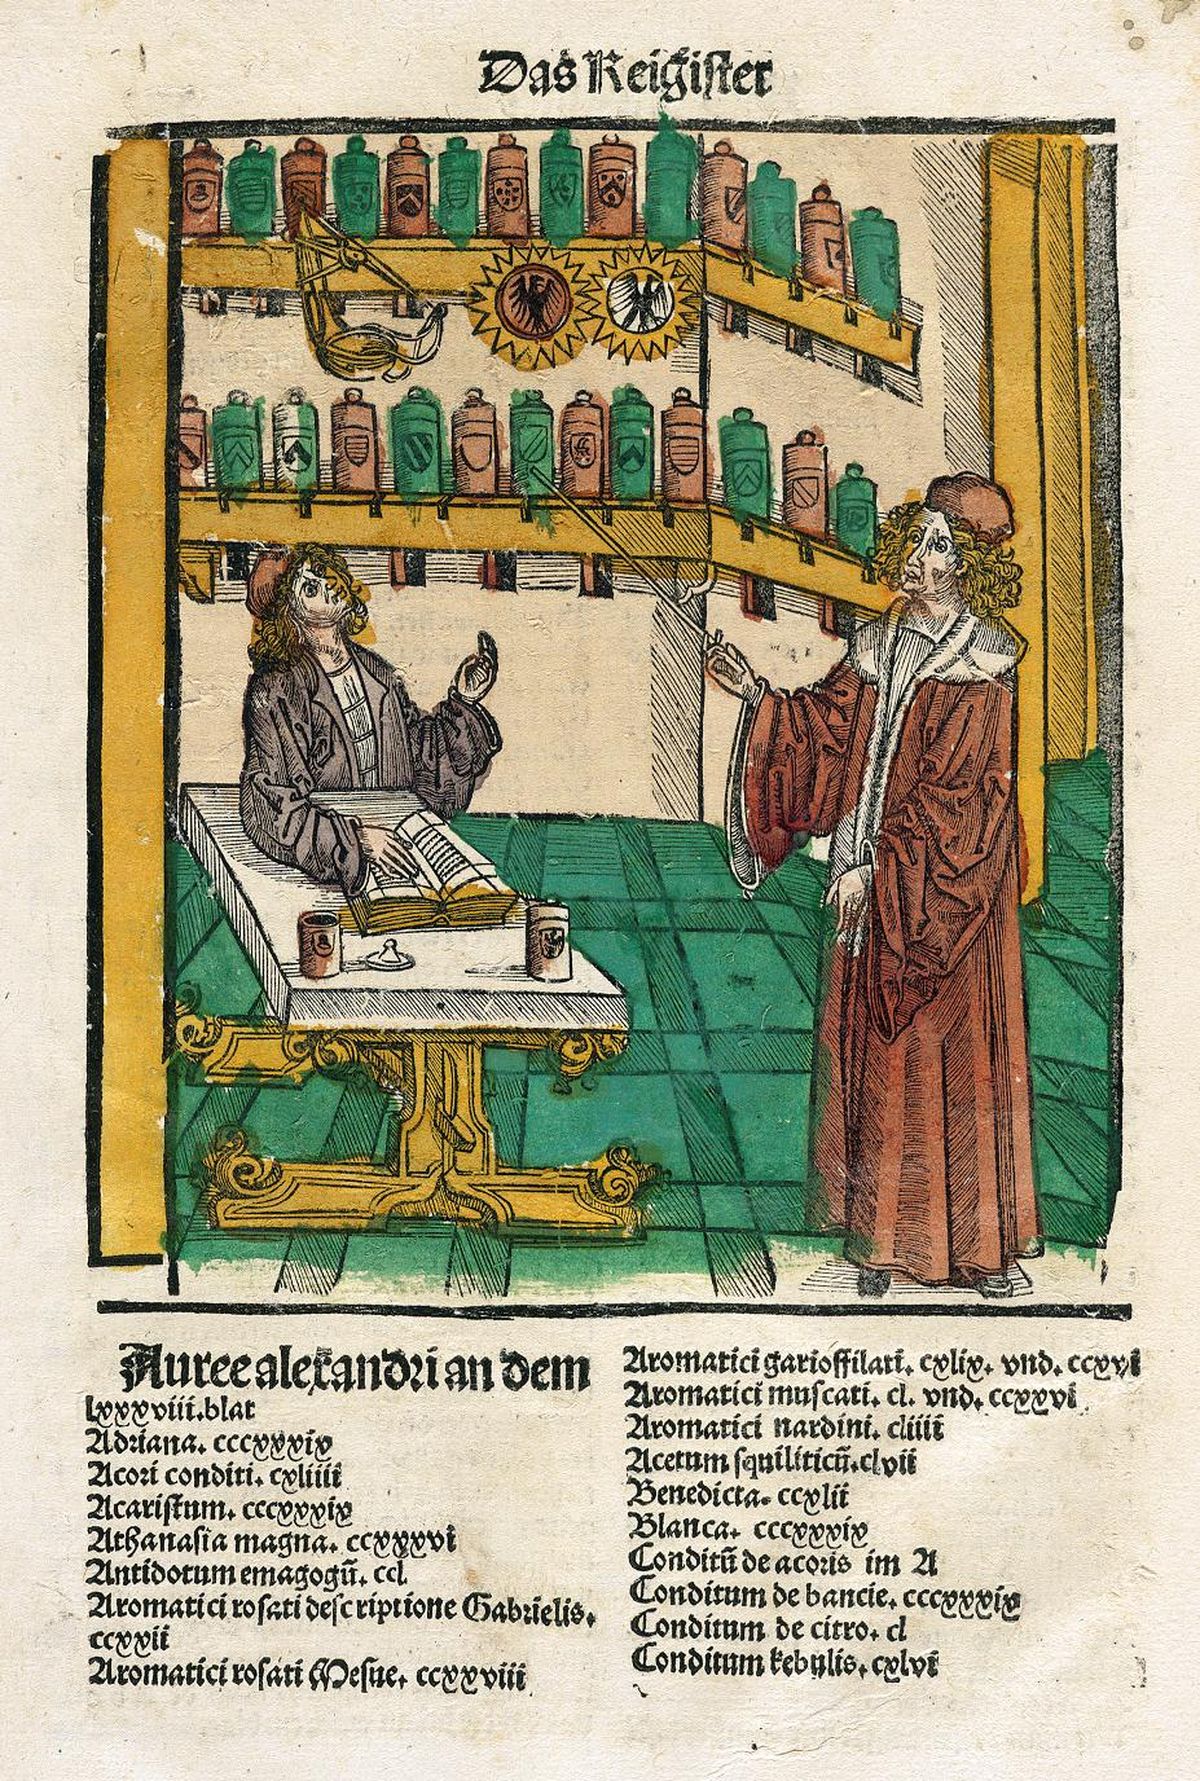 Das Reigister
Auree alexandri an dem
lxxxviii.blat
Adriana. cccxxxix
Acori conditi. cxliiii
Acaristum. cccxxxix
Athanasia magna. ccxxxvi
Antidotum emagogū. ccl
Aromatici rosati descriptione Gabrielis.
ccxxii
Aromatici rosati Mesue. ccxxviii
Aromatici garioffilati. cxlix. vnd. ccxxvi
Aromatici muscati. cl. vnd. ccxxvi
Aromatici nardini. cliiii
Acetum squiliticū.clvii
Benedicta. ccxlii
Blanca. cccxxxix
Conditū de acoris im A
Conditum de bancie. cccxxxix
Conditum de citro. cl
Conditum kebulis. cxlvi